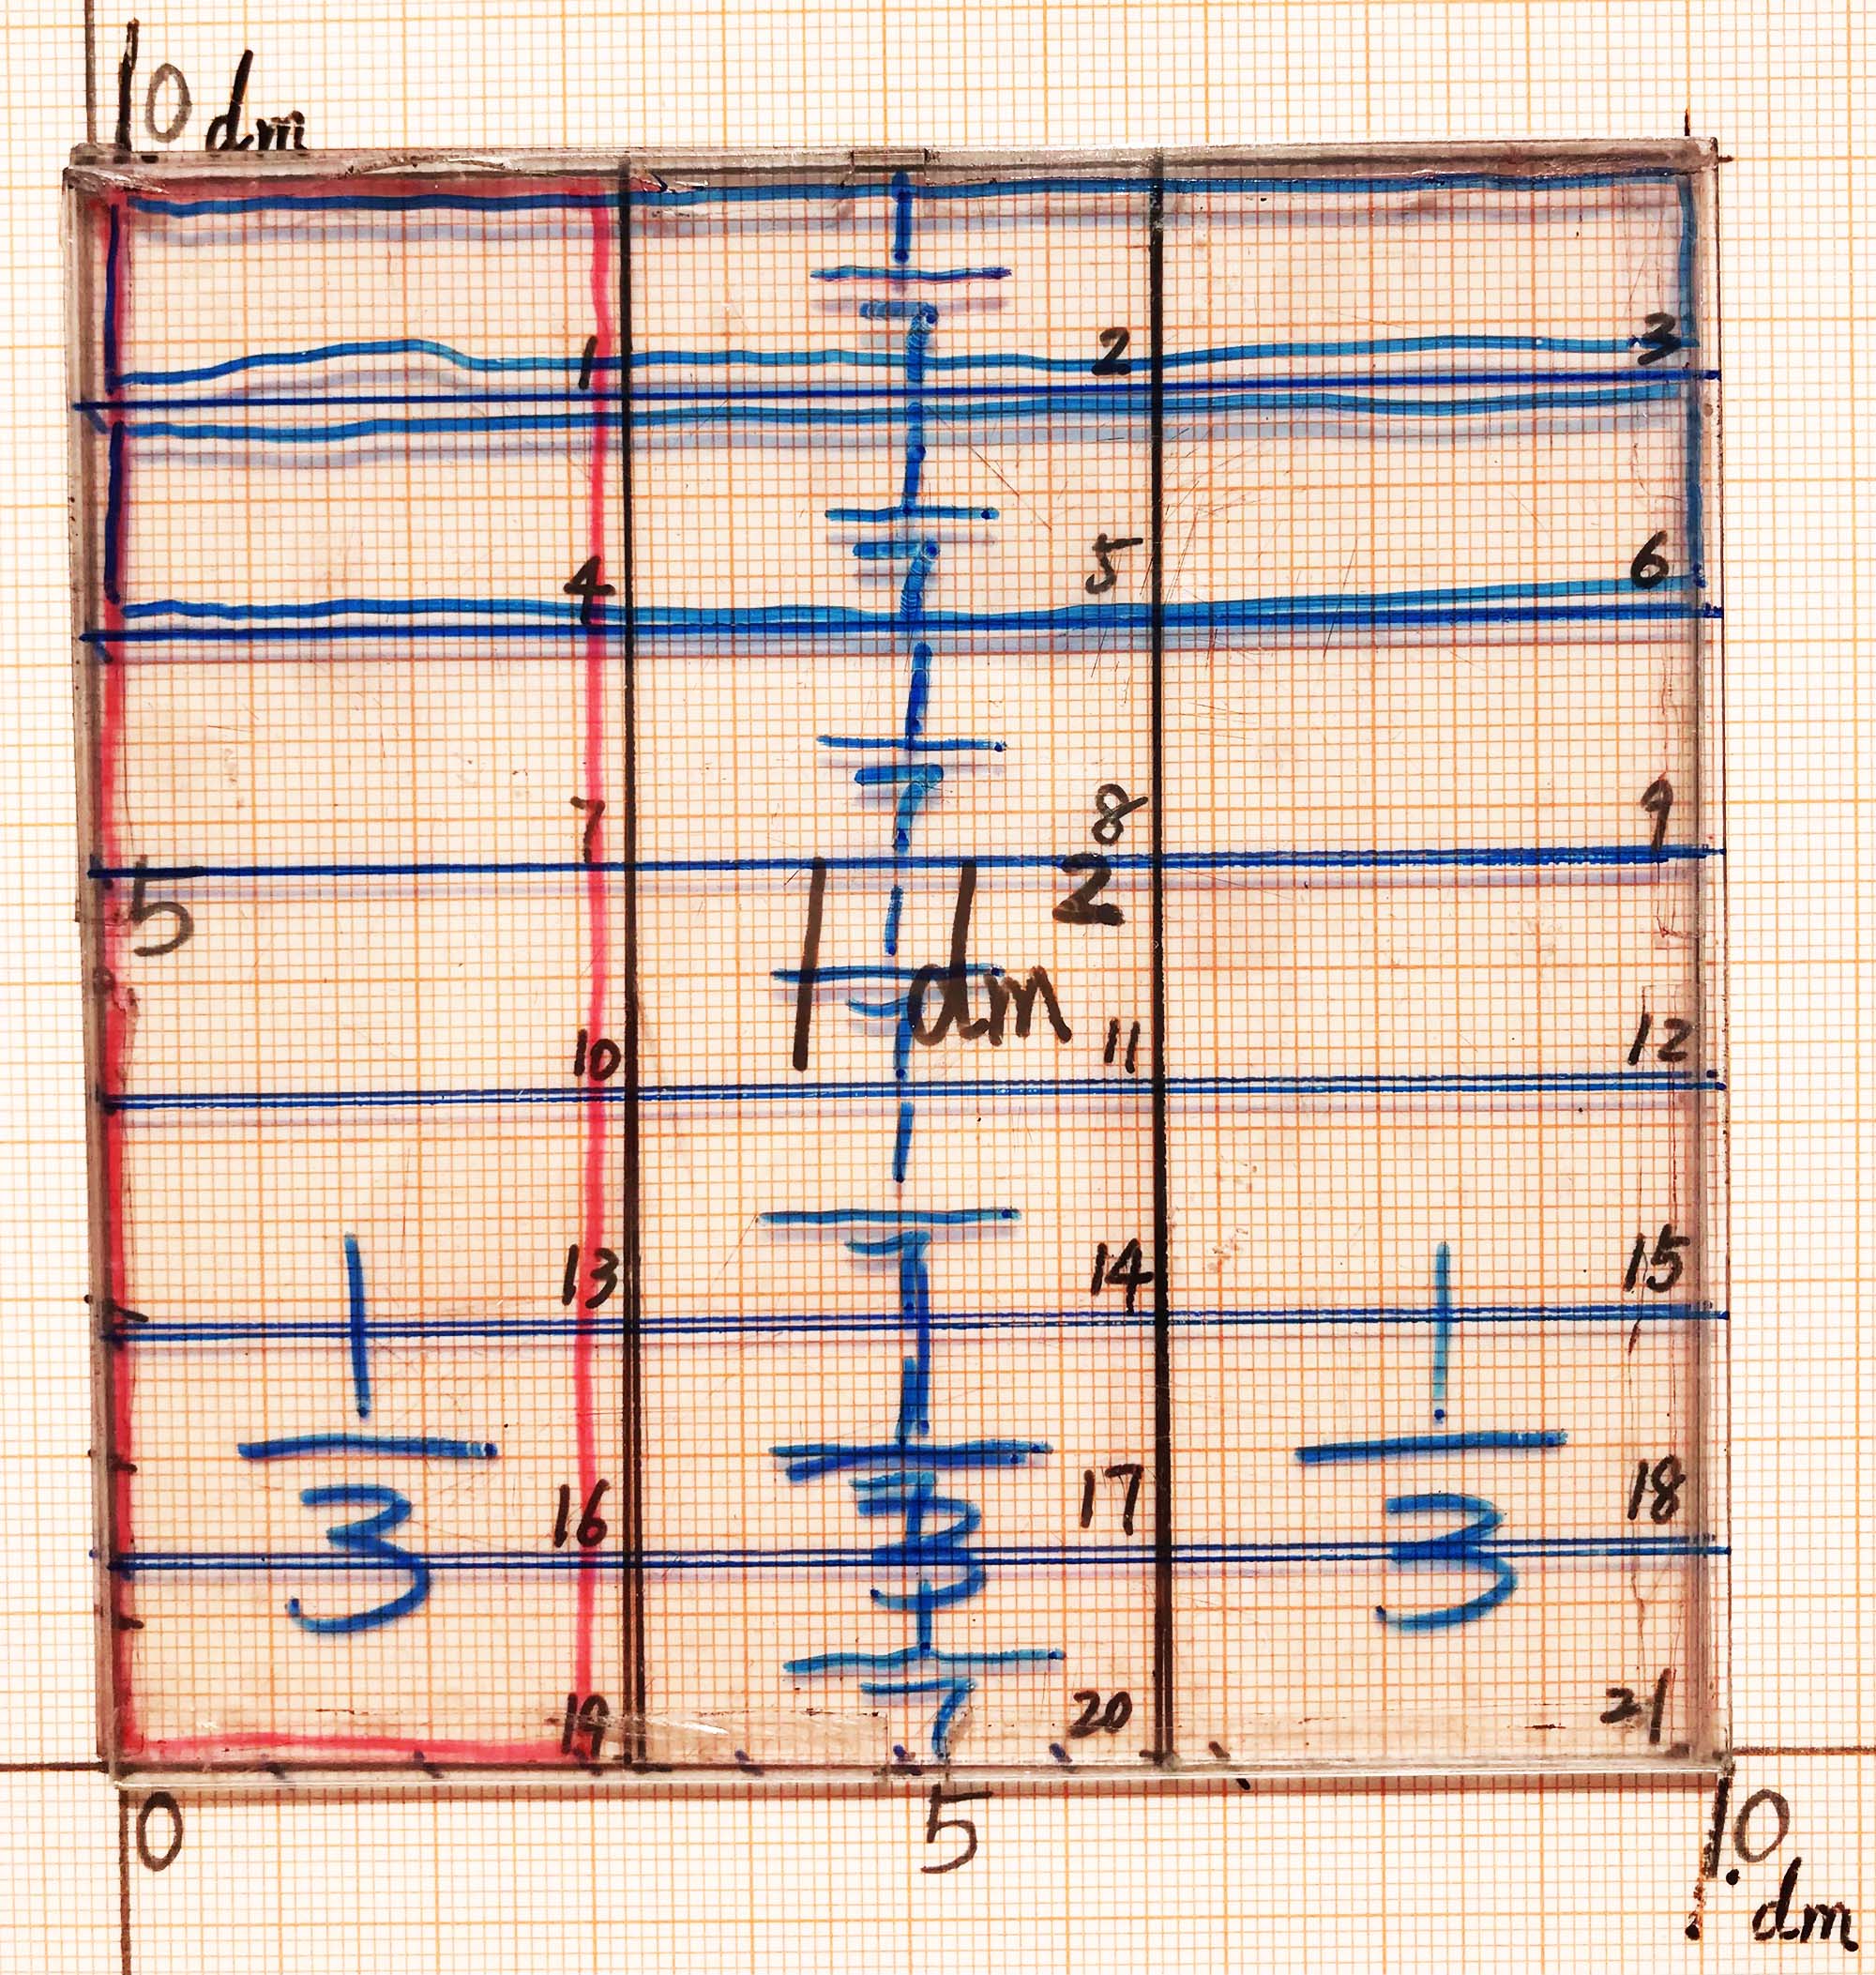 10 dm
1
7
1 2 3
1
7
4 5 6
1
7
7 8 9
5 1 dm 2
1
7
10 11 12
1
7
13 14 15
1 1 1
3 3 3
7
16 17 18
1
7
19 20 21
0 5 10
1 dm